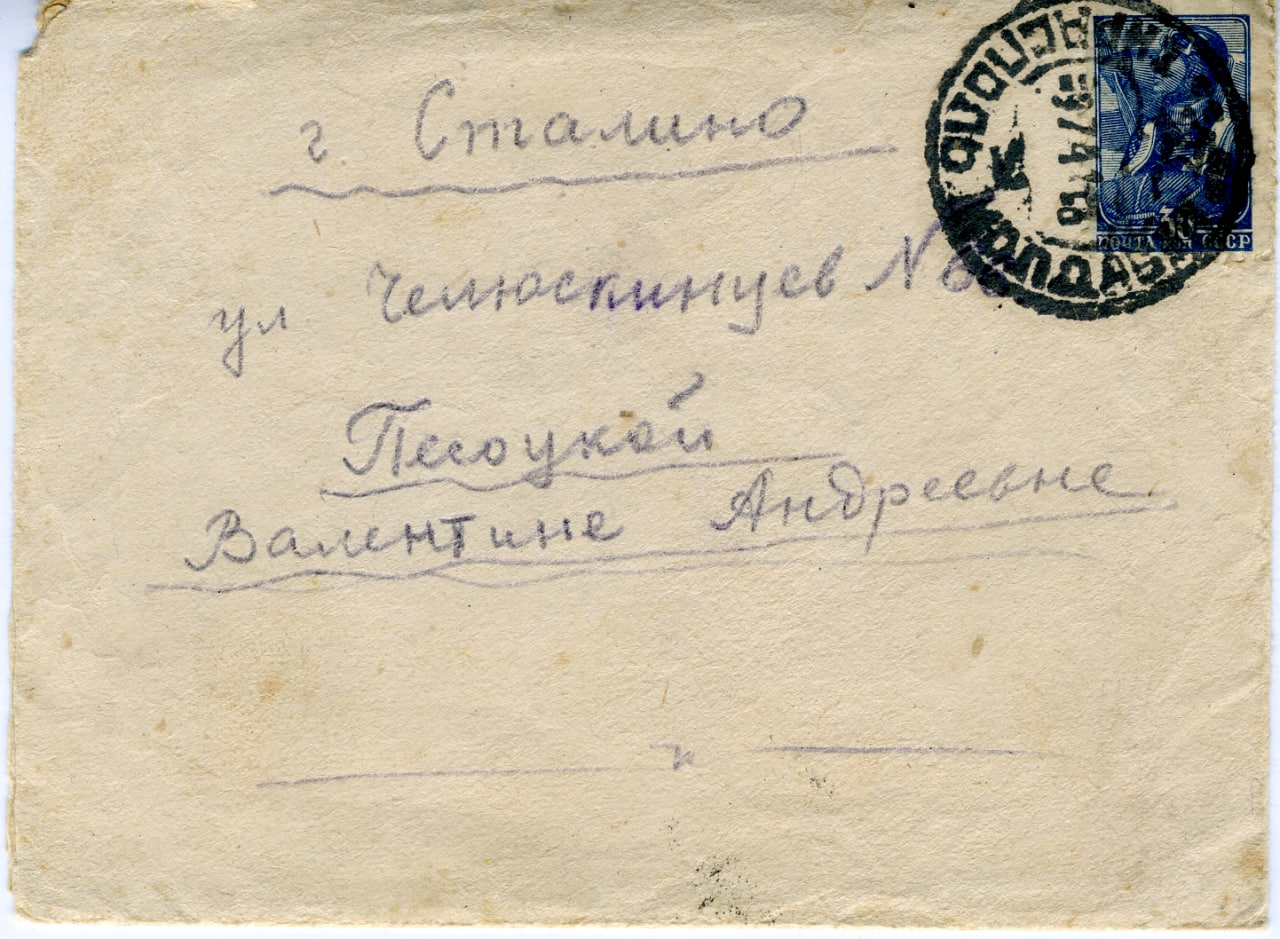 г. Сталино
ул Челюскинцев N
Песоцкой
Валентине Андреевне
30
ПОЧТА СССР